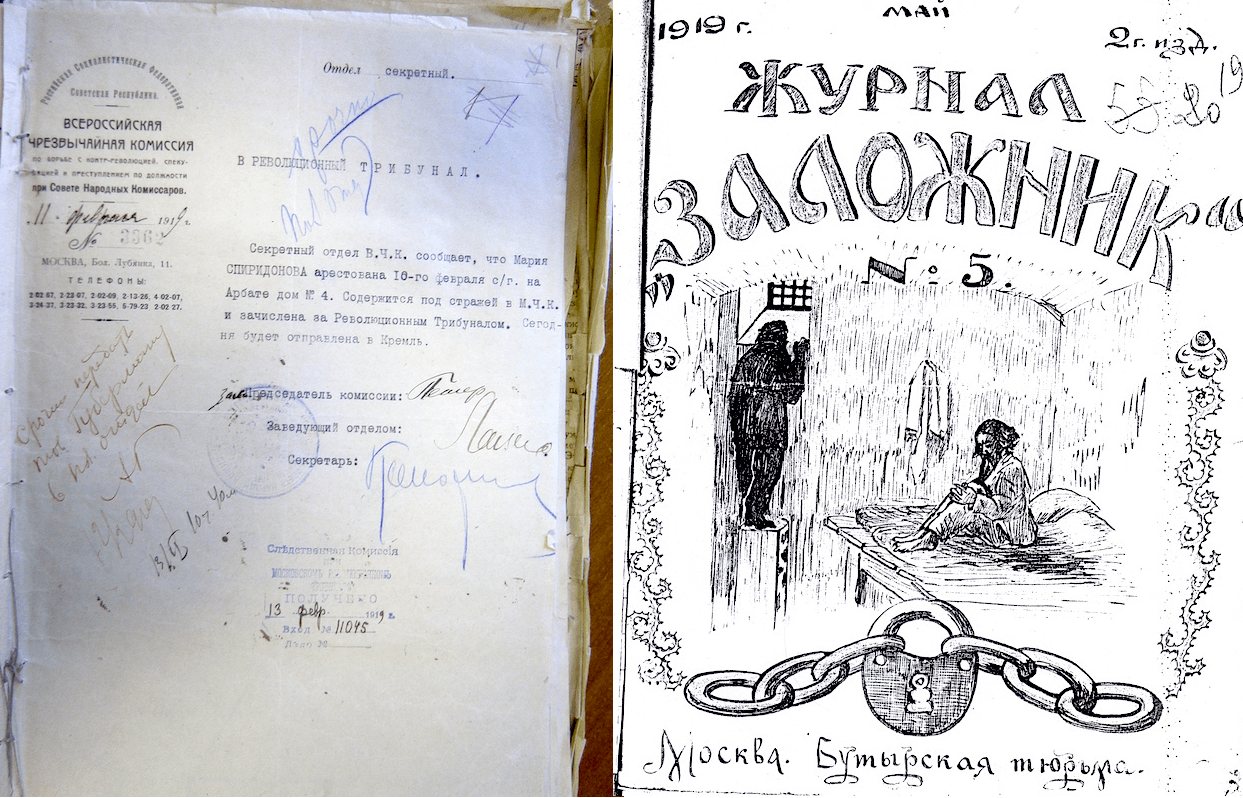 Российская Социалистическая Федеративная
Советская Республика.
ВСЕРОССИЙСКАЯ
ЧРЕЗВЫЧАЙНАЯ КОМИССИЯ
ПО БОРЬБЕ С КОНТР-РЕВОЛЮЦИЕЙ, СПЕКУ-
ЛЯЦИЕЙ И ПРЕСТУПЛЕНИЕМ ПО ДОЛЖНОСТИ
при Совете Народных Комиссаров.
11 февраля 1919 г.
№ 3362
МОСКВА, Бол. Лубянка, 11.
ТЕЛЕФОНЫ:
2-02-67, 2-23-07, 2-02-69, 2-13-26, 4-02-07,
3-24-37, 3-23-32, 3-23-55, 5-79-23 2-02 27.
Отдел секретный.
В РЕВОЛЮЦИОННЫЙ ТРИБУНАЛ.
Секретный отдел В.Ч.К. сообщает, что Мария
СПИРИДОНОВА арестована 10-го февраля с/г. на
Арбате дом № 4. Содержится под стражей в М.Ч.К.
и зачислена за Революционным Трибуналом. Сегод-
ня будет отправлена в Кремль.
Председатель комиссии:
Заведующий отделом:
Секретарь:
Срочно передать
Слѣдственная Комиссія
ПОЛУЧЕНО
13 февр 1919 г.
Вход № 11045
Дѣло №
МАЙ
1919 г.
2г. изд.
ЖУРНАЛ
„ЗАЛОЖНИК“
№ 5.
Москва. Бутырская тюрьма.